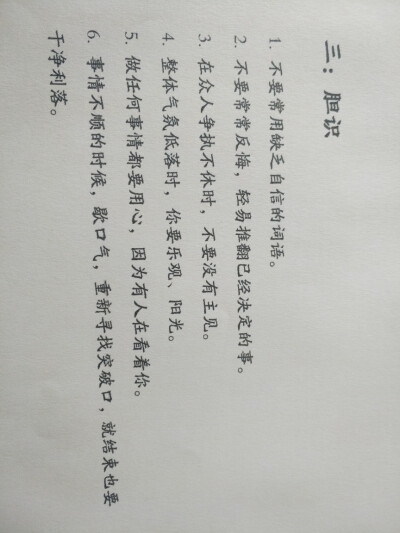 三：胆识
1. 不要常用缺乏自信的词语。
2. 不要常常反悔，轻易推翻已经决定的事。
3. 在众人争执不休时，不要没有主见。
4. 整体气氛低落时，你要乐观、阳光。
5. 做任何事情都要用心，因为有人在看着你。
6. 事情不顺的时候，歇口气，重新寻找突破口，就结束也要
干净利落。